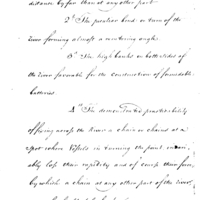 distance by far than at any other part
2d The peculiar bend or turn of the
river forming almost a reentering angle.
3d The high banks on both sides of
the river favorable for the construction of formidable
batteries.
4th The demonstrated practicability
of flung across the River a chain or chains at a
spot where Vessels in turning the point, invari-
ably lose their rapidity and of course their force,
by which a chain at any other part of the river